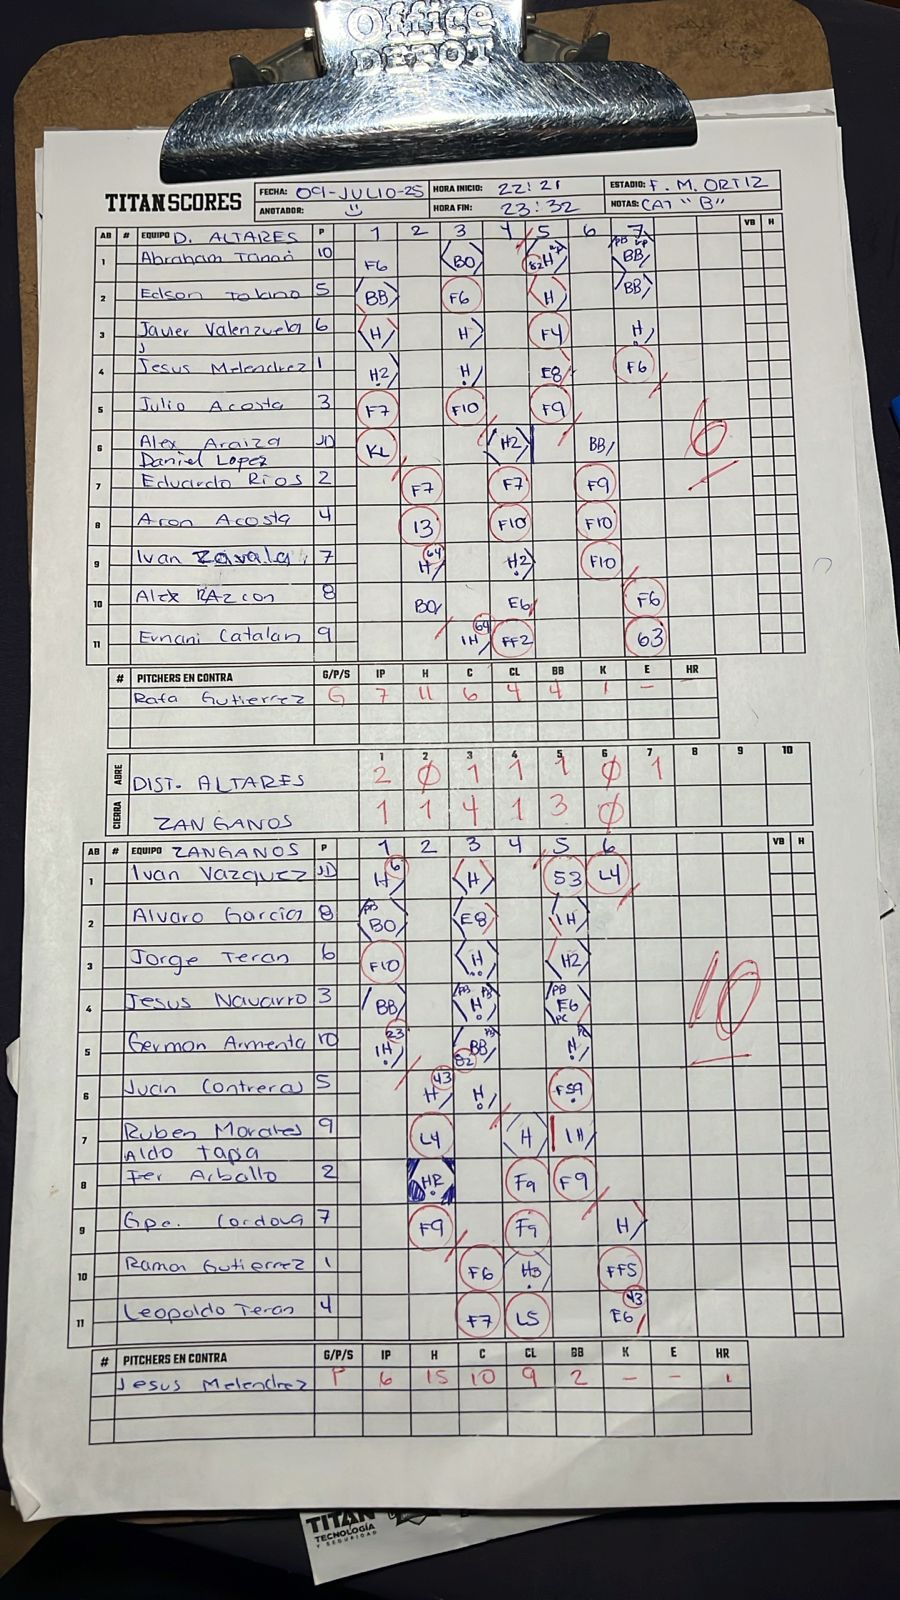 Office
DEPOT
TITAN SCORES
FECHA: 09-JULIO-25 HORA INICIO: 22:21 ESTADIO: F. M. ORTIZ
ANOTADOR: HORA FIN: 23:32 NOTAS: CAT "B"
AB # EQUIPO D. ALTARES P 1 2 3 4 5 6 7 VB H
1 Abraham 10 F6 BO 82 H BB
2 Edson 5 BB F6 H BB
3 Javier Valenzuela 6 H H F4 H
J
4 Jesus Melendrez 1 H2 H E8 F6
5 Julio Acosta 3 F7 F10 F9
6 Alex Araiza JD KL H2 BB 6
Daniel Lopez
7 Eduardo Rios 2 F7 F7 F9
8 Aron Acosta 4 13 F10 F10
9 Ivan Zavala 7 H 64 H2 F10
10 Alex RAZcon 8 BO E6 F6
11 Ernani Catalan 9 IH 64 FF2 63
# PITCHERS EN CONTRA G/P/S IP H C CL BB K E HR
Rafa Gutierrez G 7 11 6 4 4 1 – –
1 2 3 4 5 6 7 8 9 10
ABRE DIST. ALTARES 2 Ø 1 1 1 Ø 1
CIERRA ZANGANOS 1 1 4 1 3 Ø
AB # EQUIPO ZANGANOS P 1 2 3 4 5 6 VB H
1 Ivan Vazquez JD H 6 H 53 L4
2 Alvaro Garcia 8 PB BO E8 IH
3 Jorge Teran 6 F10 H H2
4 Jesus Navarro 3 BB PB PB H PB E6 PC 10
5 German Armenta 10 IH 23 82 BB H
6 Juan Contreras 5 H 43 H F59
7 Ruben Morales 9 L4 H IH
Aldo Tapia
8 Fer Arballo 2 HR F9 F9
9 Gpe. Cordova 7 F9 F9 H
10 Ramon Gutierrez 1 F6 H3 FF5
11 Leopoldo Teran 4 F7 L5 E6 43
# PITCHERS EN CONTRA G/P/S IP H C CL BB K E HR
Jesus Melendrez P 6 15 10 9 2 – – 1
TITAN
TECNOLOGÍA
Y SEGURIDAD